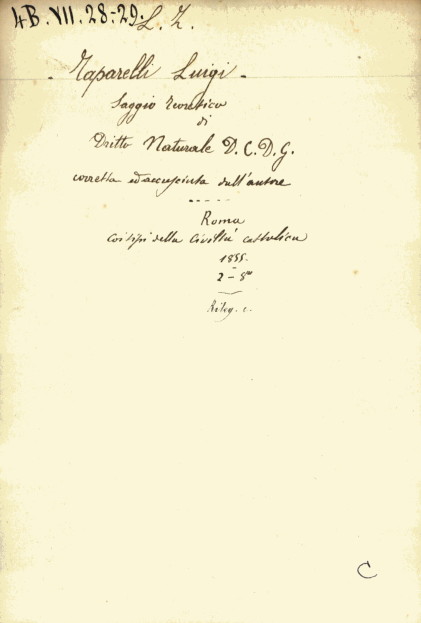 4B.VII.28-29. L. Z.
Taparelli Luigi.
Saggio Teoretico
di
Dritto Naturale D. C. D. G.
corretta ed accresciuta dall'autore
Roma
coi tipi della Civiltà cattolica
1855.
2-8º
Rileg. c.
C